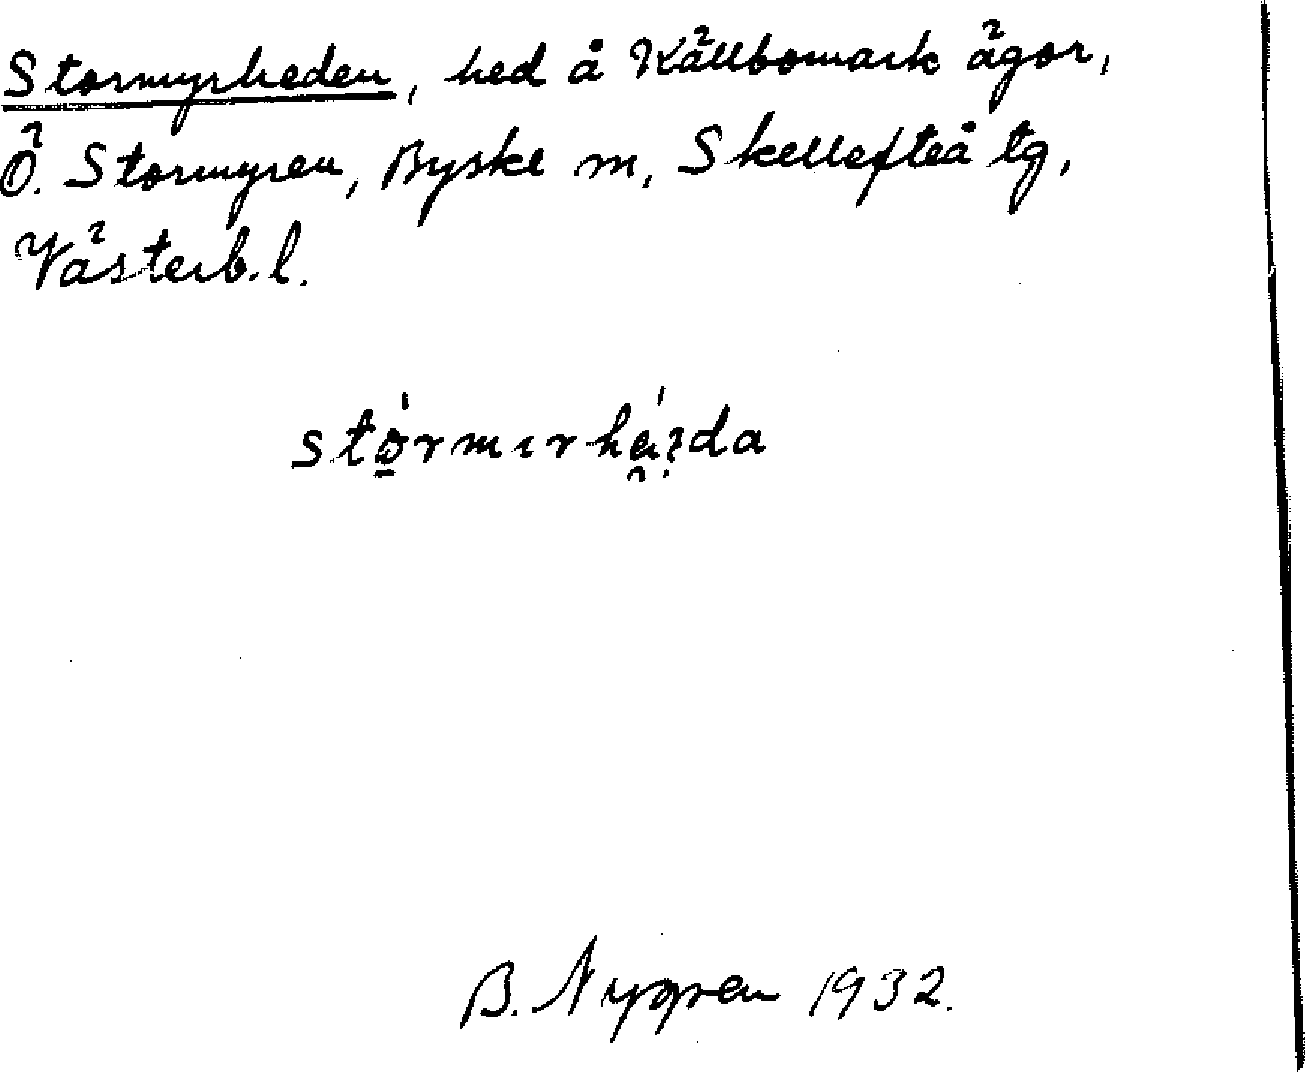 Stormyrheden, hed å Källbomark ägor,
Ö. Stormyren, Byske sn, Skellefteå tg,
Västerb. l.
B. Nygren 1932.